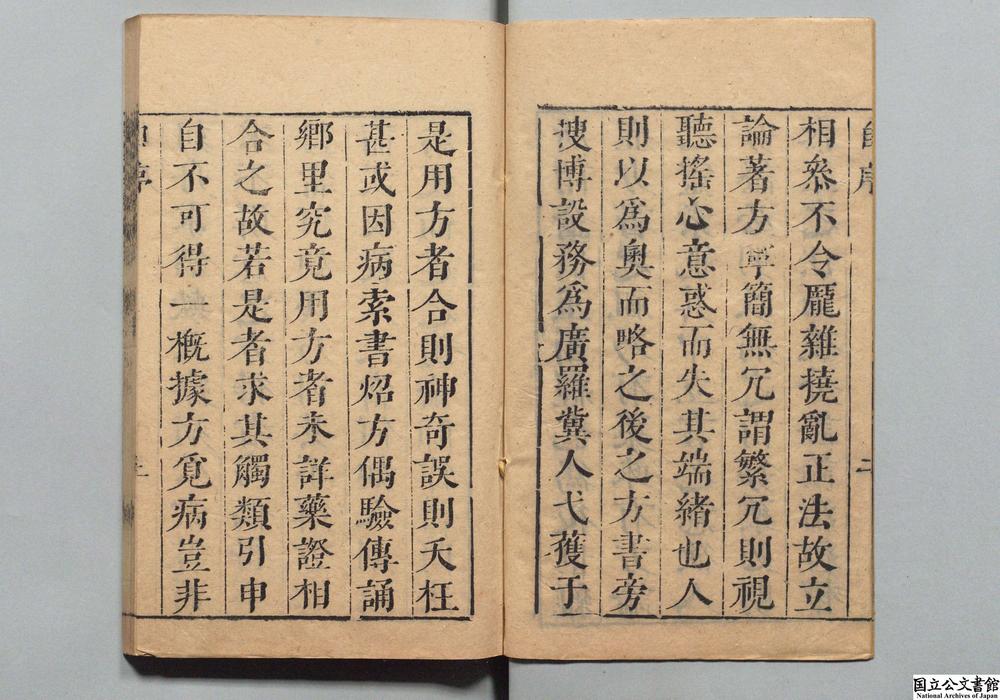 自序
二
相叅不令龎雜撓亂正法故立
論著方寧簡無冗謂繁冗則視
聽搖心意惑而失其端緒也人
則以為奧而略之後之方書旁
搜博設務為廣羅冀人弋獲于
是用方者合則神奇誤則夭枉
甚或因病索書炤方偶驗傳誦
鄉里究竟用方者未詳藥證相
合之故若是者求其觸類引申
自不可得一概據方覓病豈非
国立公文書館
National Archives of Japan